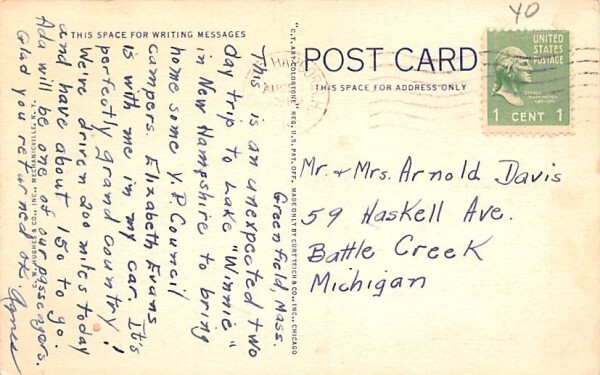 THIS SPACE FOR WRITING MESSAGES
Greenfield, Mass.
This is an unexpected two
day trip to Lake "Winnie"
in New Hampshire to bring
home some Y.P. Council
campers. Elizabeth Evans
is with me in my car. It's
perfectly grand country!
We've driven 200 miles today
and have about 150 to go.
Ada will be one of our passengers.
Glad you returned OK. Agnes
HUGHES & CO., INC., MECHANICVILLE, N. Y.
"C.T. ART-COLORTONE" REG. U.S. PAT. OFF. MADE ONLY BY CURT TEICH & CO., INC., CHICAGO
POST CARD
THIS SPACE FOR ADDRESS ONLY
40
UNITED
STATES
POSTAGE
GEORGE
WASHINGTON
1 CENT 1
AUG
Mr. & Mrs. Arnold Davis
59 Haskell Ave.
Battle Creek
Michigan